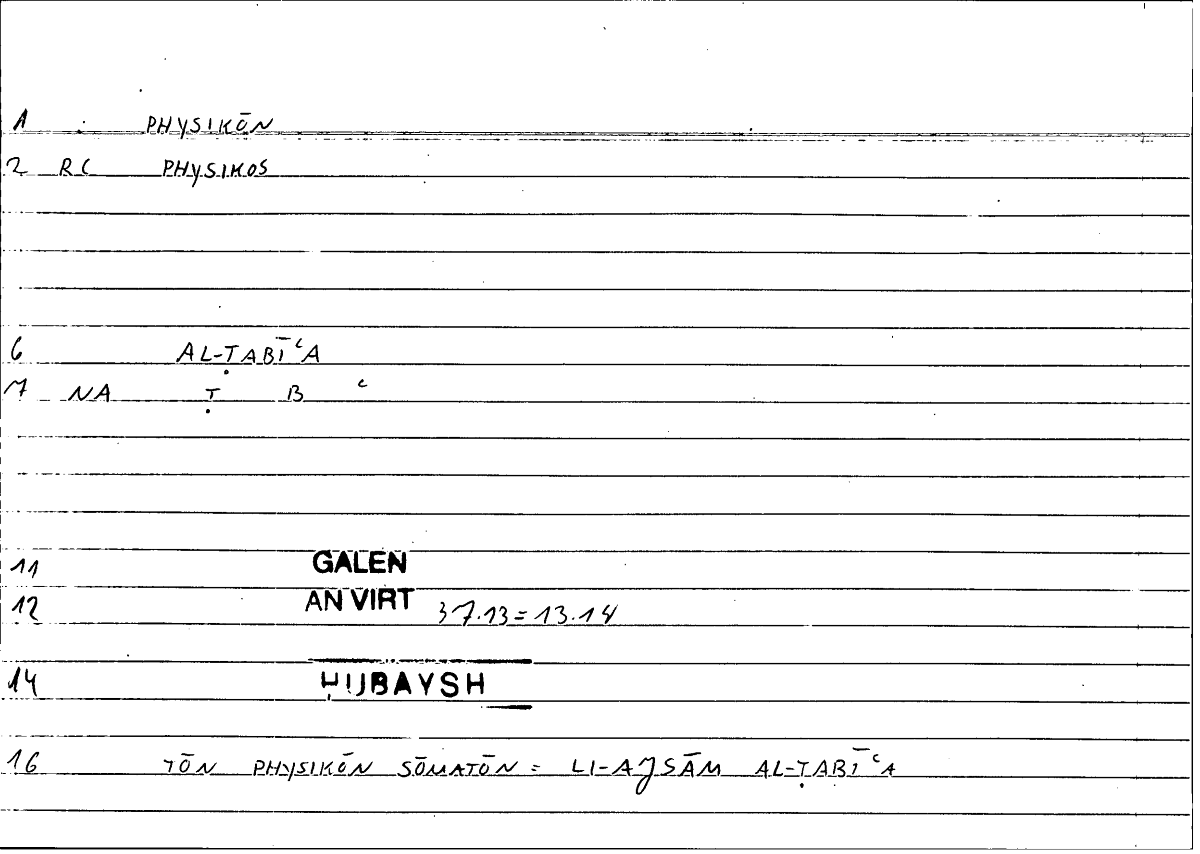 1 PHYSIKŌN
2 RC PHYSIKOS
6 AL-ṬABĪʿA
7 NA Ṭ B ʿ
11 GALEN
12 AN VIRT 37.13=13.14
14 ḤUBAYSH
16 TŌN PHYSIKŌN SŌMATŌN = LI-AJSĀM AL-ṬABĪʿA